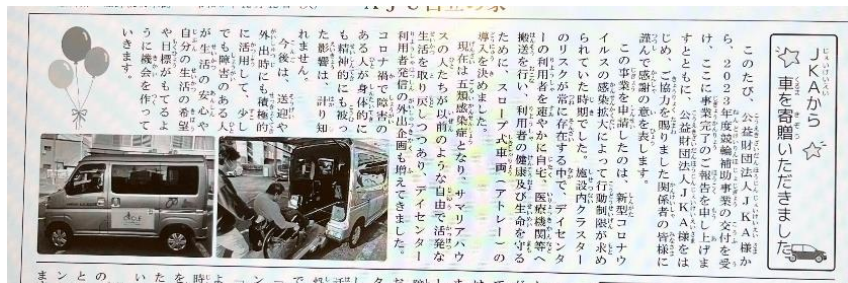 JKAから
車を寄贈いただきました
このたび、公益財団法人JKA様か
ら、2023年度競輪補助事業の交付を受
け、ここに事業完了のご報告を申し上げま
すとともに、公益財団法人JKA様をは
じめ、ご協力を賜りました関係者の皆様に
謹んで感謝の意を表します。
この事業を申請したのは、新型コロナウ
イルスの感染拡大によって行動制限が求め
られていた時期でした。施設内クラスター
のリスクが常に存在する中で、デイセンタ
ーの利用者を速やかに自宅、医療機関等へ
搬送を行い、利用者の健康及び生命を守る
ために、スロープ式車両（アトレー）の
導入を決めました。
現在は五類感染症となり、サマリアハウ
スの人たちが以前のような自由で活発な
生活を取り戻しつつあり、デイセンター
利用者発信の外出企画も増えてきました。
コロナ禍で障害の
ある人が身体的に
も精神的にも被っ
た影響は、計り知
れません。
今後は、送迎や
外出時にも積極的
に活用して、少し
でも障害のある人
が生活の安心や
自分の生活の希望
や目標がもてるよ
うに機会を作って
いきます。